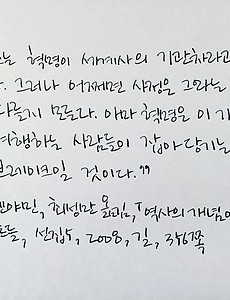 는 혁명이 세계사의 기관차라고
다. 그러나 어쩌면 사정은 그와는
다를지 모른다. 아마 혁명은 이 기
여행하는 사람들이 잡아당기는
브레이크일 것이다.”
벤야민, 최성만 옮김, 「역사의 개념에
트들, 선집5, 2008, 길, 356쪽